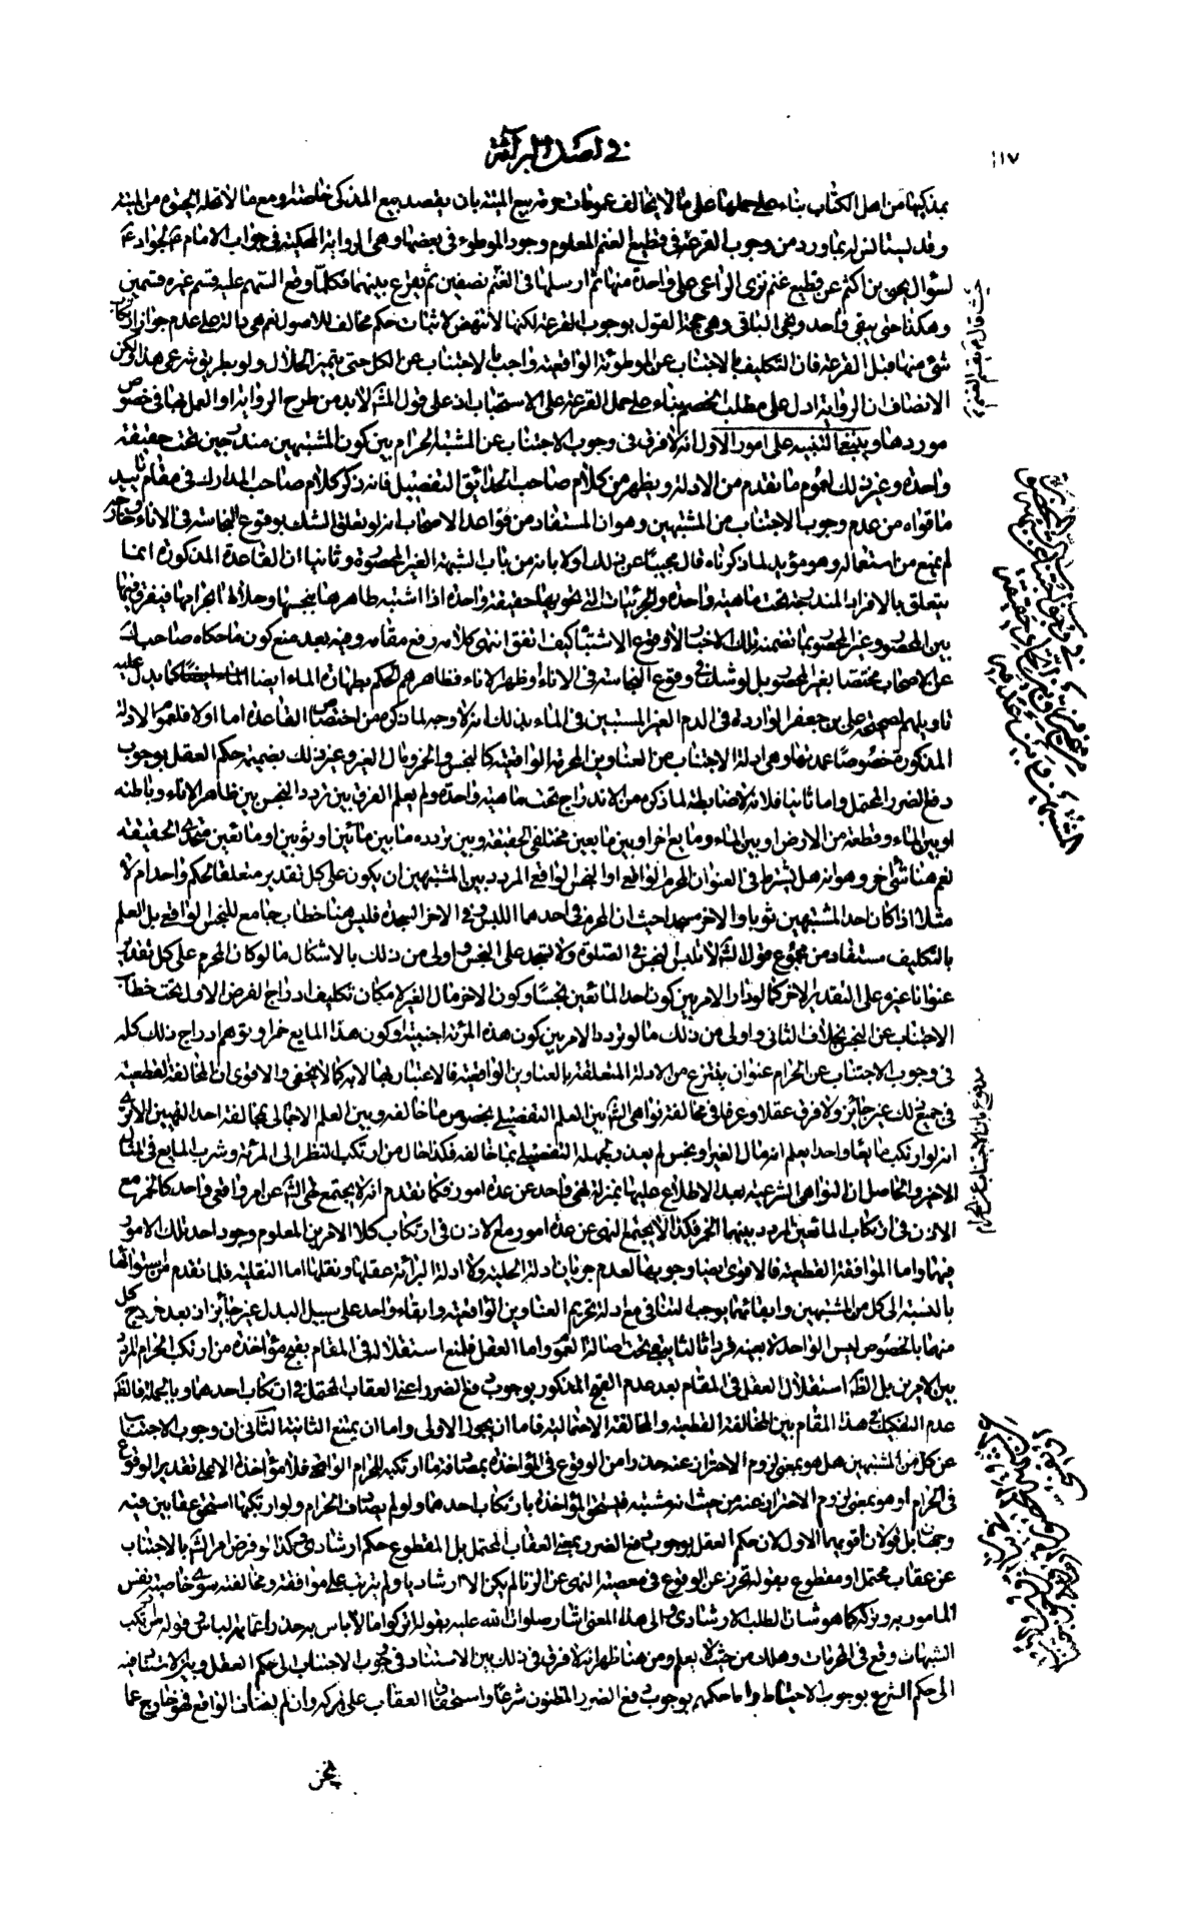 في اصل البرائة
بمذكيها من اهل الكتاب بناء على حملها على ما لا يخالف عمومات حرمة بيع الميتة بان يقصد بيع المذكى خاصة او مع ما لا تحله الحيوة من الميتة
وقد يستانس له بما ورد من وجوب القرعة في قطيع الغنم المعلوم وجود الموطوء في بعضها وهي الرواية المحكية في جواب الامام الجواد ع
لسؤال يحيى بن اكثم عن قطيع غنم نزى الراعي على واحدة منها ثم ارسلها في الغنم نصفين ثم يقرع بينهما فكلما وقع السهم عليه قسم غيره قسمين
وهكذا حتى يبقى واحد ونجى الباقي وهي حجة القول بوجوب القرعة لكنها لا تنهض لاثبات حكم مخالف للاصول نعم هي دالة على عدم جواز ارتكاب
شئ منها قبل القرعة فان التكليف بالاجتناب عن الموطوئة الواقعية واجب بالاجتناب عن الكل حتى يتميز الحلال ولو بطريق شرعي هذا ولكن
الانصاف ان الرواية ادل على مطلب الخصم بناء على حمل القرعة على الاستحباب اذ على قول المش لا بد من طرح الرواية او العمل بها في خصوص
موردها وينبغي التنبيه على امور الاول انه لا فرق في وجوب الاجتناب عن المشتبه الحرام بين كون المشتبهين مندرجين تحت حقيقة
واحدة وغير ذلك لعموم ما تقدم من الادلة ويظهر من كلام صاحب الحدائق التفصيل فانه ذكر كلام صاحب المدارك في مقام تاييد
ما قواه من عدم وجوب الاجتناب من المشتبهين وهو ان المستفاد من قواعد الاصحاب انه لو تعلق الشك بوقوع النجاسة في الاناء وخارجه
لم يمنع من استعماله وهو مؤيد لما ذكرناه قال مجيبا عن ذلك اولا بانه من باب الشبهة الغير المحصورة وثانيا ان القاعدة المذكورة انما
يتعلق بالافراد المندرجة تحت ماهية واحدة والجزئيات التي تحويها حقيقة واحدة اذا اشتبه طاهرها بنجسها وحلالها بحرامها فيفرق فيها
بين المحصور وغير المحصور بما تضمنته تلك الاخبار لا وقوع الاشتباه كيف اتفق انتهى كلامه رفع مقامه وفيه بعد منع كون ما حكاه صاحب المدارك
عن الاصحاب مختصا بغير المحصور بل لو شك في وقوع النجاسة في الاناء او ظهر الاناء فظاهرهم الحكم بطهارة الماء ايضا كما يدل عليه
تاويلهم لصحيحة علي بن جعفر الواردة في الدم الغير المستبين في الماء بذلك انه لا وجه لما ذكره من اختصاص القاعدة اما اولا فلعموم الادلة
المذكورة خصوصا عمدتها وهي ادلة الاجتناب عن العناوين المحرمة الواقعية كالنجس والخمر ومال الغير وغير ذلك بضميمة حكم العقل بوجوب
دفع الضرر المحتمل واما ثانيا فلانه لا ضابطة لما ذكره من الاندراج تحت ماهية واحدة ولم يعلم الفرق بين تردد النجس بين ظاهر الاناء وباطنه
او بين الماء وقطعة من الارض او بين الماء ومايع اخر او بين مايعين مختلفي الحقيقة وبين تردده ما بين مائين او ثوبين او مائعين متحدي الحقيقة
نعم هنا شئ اخر وهو انه هل يشترط في العنوان المحرم الواقعي او النجس الواقعي المردد بين المشتبهين ان يكون على كل تقدير متعلقا لحكم واحد ام لا
مثلا اذا كان احد المشتبهين ثوبا والاخر مسجدا حيث ان المحرم في احدهما اللبس وفي الاخر السجدة فليس هنا خطاب جامع للنجس الواقعي بل العلم
بالتكليف مستفاد من مجموع قول الش لا تلبس النجس في الصلوة ولا تسجد على النجس واولى من ذلك بالاشكال ما لو كان المحرم على كل تقدير
عنوانا غيره على التقدير الاخر كما لو دار الامر بين كون احد المائعين نجسا وكون الاخر مال الغير لامكان تكليف ادراج الفرض الاول تحت خطاب
الاجتناب عن النجس بخلاف الثاني واولى من ذلك ما لو تردد الامر بين كون هذه المرئة اجنبية او كون هذا المايع خمرا وتوهم ادراج ذلك كله
في وجوب الاجتناب عن الحرام عنوان ينتزع من الادلة المتعلقة بالعناوين الواقعية فالاعتبار بها لا به كما لا يخفى والاقوى ان المخالفة القطعية
في جميع ذلك غير جائز ولا فرق عقلا وعرفا في مخالفة نواهي الش بين العلم التفصيلي بخصوص ما خالفه وبين العلم الاجمالي بمخالفة احد النهيين الا ترى
انه لو ارتكب مايعا واحدا يعلم انه مال الغير او نجس لم يعذر بجهله التفصيلي بما خالفه فكذا حال من ارتكب النظر الى المرئة وشرب المايع في المثال
الاخير والحاصل ان النواهي الشرعية بعد الاطلاع عليها بمنزلة نهي واحد عن عدة امور فكما تقدم انه لا يجتمع نهي الش عن امر واقعي واحد كالخمر مع
الاذن في ارتكاب المائعين المردد بينهما الخمر فكذا لا يجتمع النهي عن عدة امور مع الاذن في ارتكاب كلا الامرين المعلوم وجود احد تلك الامور
فيهما واما الموافقة القطعية فالاقوى ايضا وجوبها لعدم جريان ادلة الحلية ولا ادلة البرائة عقلها ونقلها اما النقلية فلما تقدم من استوائها
بالنسبة الى كل من المشتبهين وابقائهما يوجب التنافي مع ادلة تحريم العناوين الواقعية وابقاء واحد على سبيل البدل غير جائز اذ بعد خروج كل
منهما بالخصوص ليس الواحد لا بعينه فردا ثالثا يبقى تحت اصالة العموم واما العقل فلمنع استقلاله في المقام بقبح مؤاخذة من ارتكب الحرام المردد
بين الامرين بل الظ استقلال العقل في المقام بعد عدم القبح المذكور بوجوب دفع الضرر اعني العقاب المحتمل في ارتكاب احدهما وبالجملة فالظ
عدم التفكيك في هذا المقام بين المخالفة القطعية والمخالفة الاحتمالية فاما ان يجوز الاولى واما ان يمنع الثانية الثاني ان وجوب الاجتناب
عن كل من المشتبهين هل هو بمعنى لزوم الاحتراز عنه حذرا من الوقوع في المؤاخذة بمصادفة ما ارتكبه للحرام الواقعي فلا مؤاخذة الا على تقدير الوقوع
في الحرام او هو بمعنى لزوم الاحتراز عنه من حيث انه مشتبه فيستحق المؤاخذة بارتكاب احدهما ولو لم يصادف الحرام ولو ارتكبهما استحق عقابين فيه
وجهان بل قولان اقويهما الاول لان حكم العقل بوجوب دفع الضرر بمعنى العقاب المحتمل بل المقطوع حكم ارشادي وكذا لو فرض امر الش بالاجتناب
عن عقاب محتمل او مقطوع بقوله تحرز عن الوقوع في معصية النهي عن الزنا لم يكن الا ارشاديا ولم يترتب على موافقته ومخالفته سوى خاصية نفس
المامور به وتركه كما هو شان الطلب الارشادي والى هذا المعنى اشار صلوات الله عليه بقوله اتركوا ما لا باس به حذرا عما به الباس وقوله من ارتكب
الشبهات وقع في المحرمات وهلك من حيث لا يعلم ومن هنا ظهر انه لا فرق في ذلك بين الاستناد في وجوب الاجتناب الى حكم العقل وبين الاستناد فيه
الى حكم الشرع بوجوب الاحتياط واما حكمهم بوجوب دفع الضرر المظنون شرعا واستحقاق العقاب على تركه وان لم يصادف الواقع فهو خارج عما
نحن
مدفوع بان الاجتناب عن الحرام